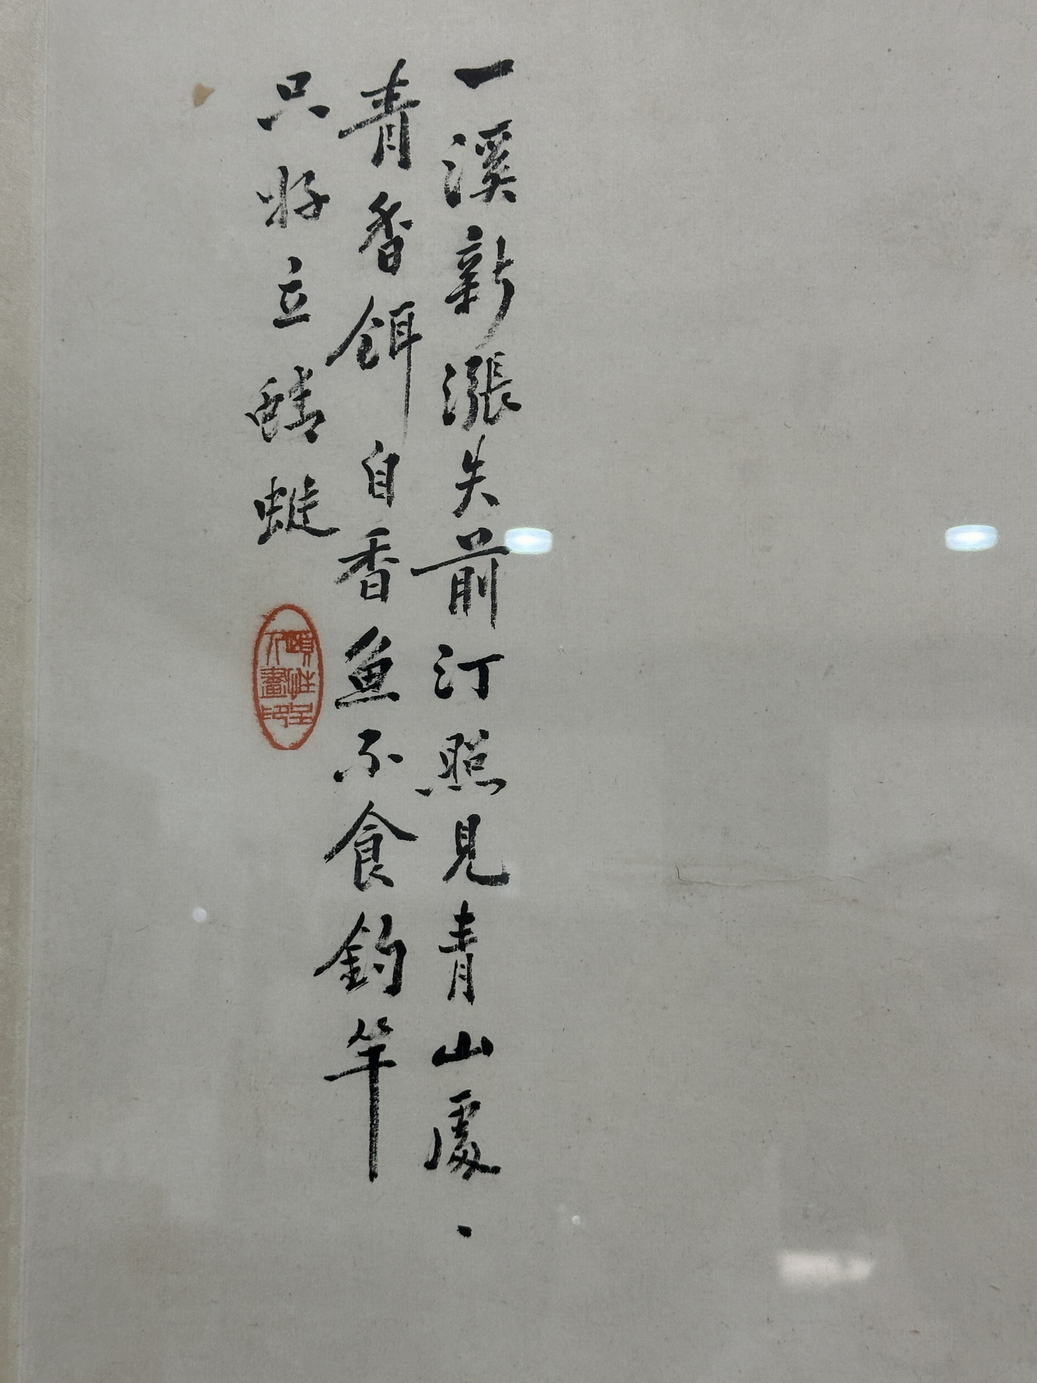 一溪新漲失前汀照見青山處、
青香餌自香魚不食釣竿
只好立蜻蜓